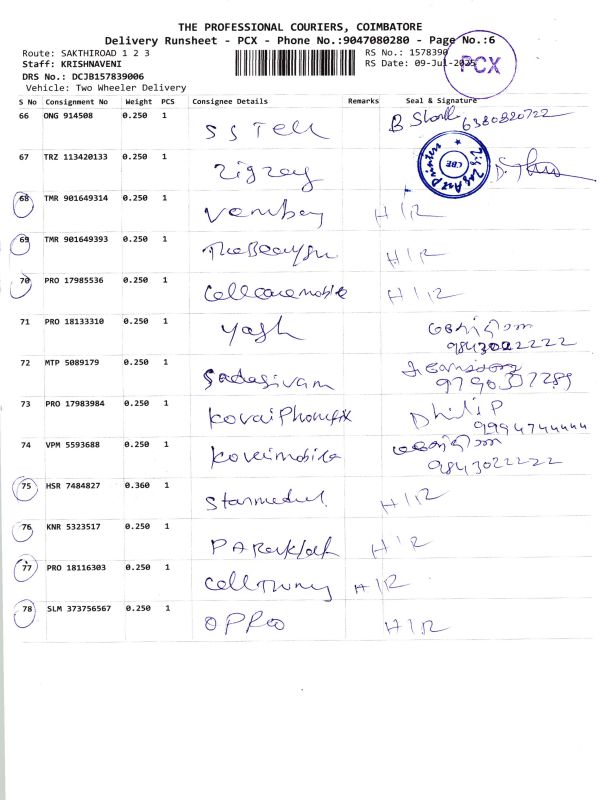 THE PROFESSIONAL COURIERS, COIMBATORE
Delivery Runsheet - PCX - Phone No.:9047080280 - Page No.:6
Route: SAKTHIROAD 1 2 3
RS No.: 1578390
Staff: KRISHNAVENI
RS Date: 09-Jul-2025
PCX
DRS No.: DCJB157839006
Vehicle: Two Wheeler Delivery
S No Consignment No Weight PCS Consignee Details Remarks Seal & Signature
66 ONG 914508 0.250 1 SS Tell 6380820722
67 TRZ 113420133 0.250 1 zigzag CBE
68 TMR 901649314 0.250 1 H/R
69 TMR 901649393 0.250 1 H/R
70 PRO 17985536 0.250 1 Cellcare mobile H/R
71 PRO 18133310 0.250 1 yash 9843022222
72 MTP 5089179 0.250 1 Sadasivam 9790307289
73 PRO 17983984 0.250 1 kovaiPhonefix Dhilip 9994744444
74 VPM 5593688 0.250 1 kovaimobile 9843022222
75 HSR 7484827 0.360 1 H/R
76 KNR 5323517 0.250 1 H/R
77 PRO 18116303 0.250 1 H/R
78 SLM 373756567 0.250 1 OPPO H/R